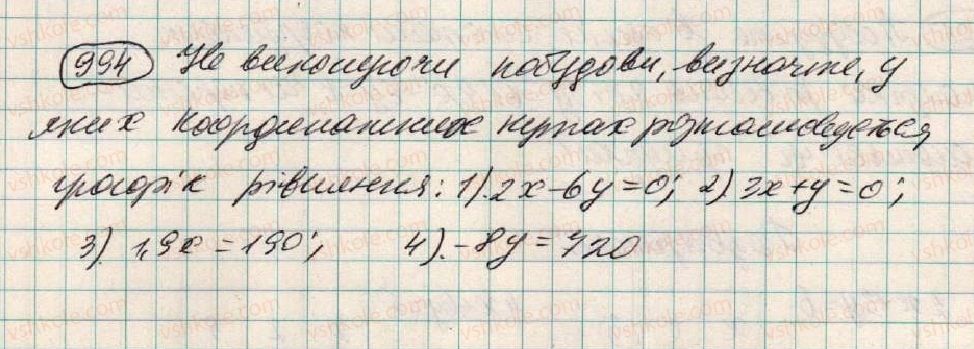 994 Не виконуючи побудови, визначте, у
яких координатних кутах розташовується
графік рівняння: 1). 2x - 6y = 0; 2) 3x + y = 0;
3). 1,9x = 190; 4). -8y = 720